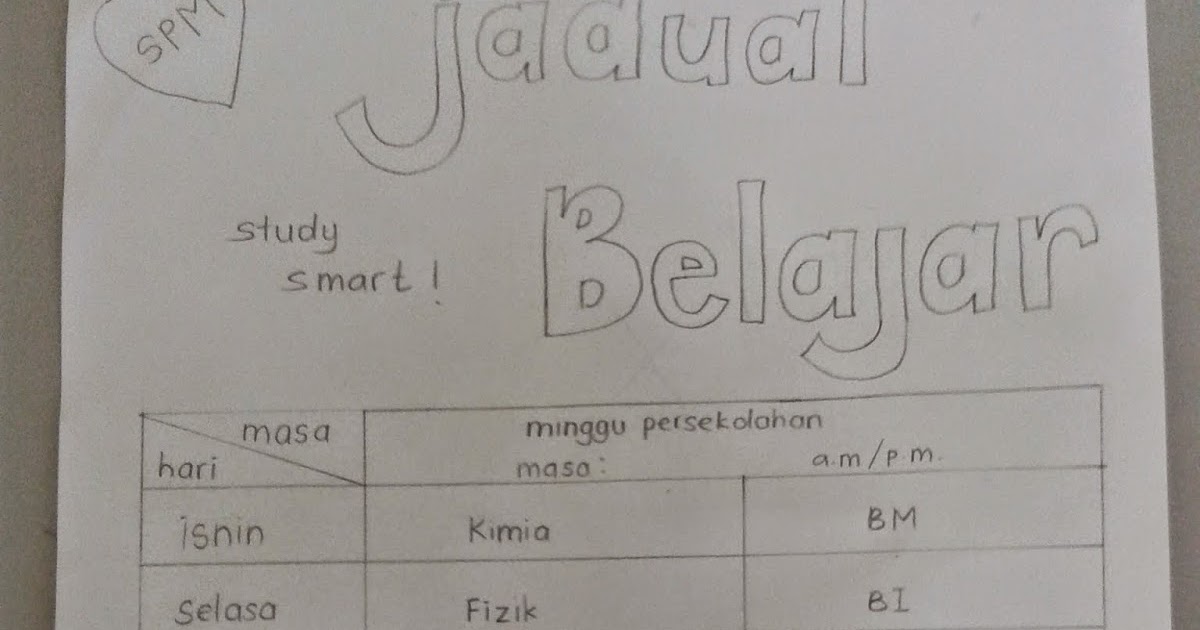 SPM
Jadual
Belajar
study
smart!
masa
hari
minggu persekolahan
masa: a.m/p.m.
isnin Kimia BM
Selasa Fizik BI